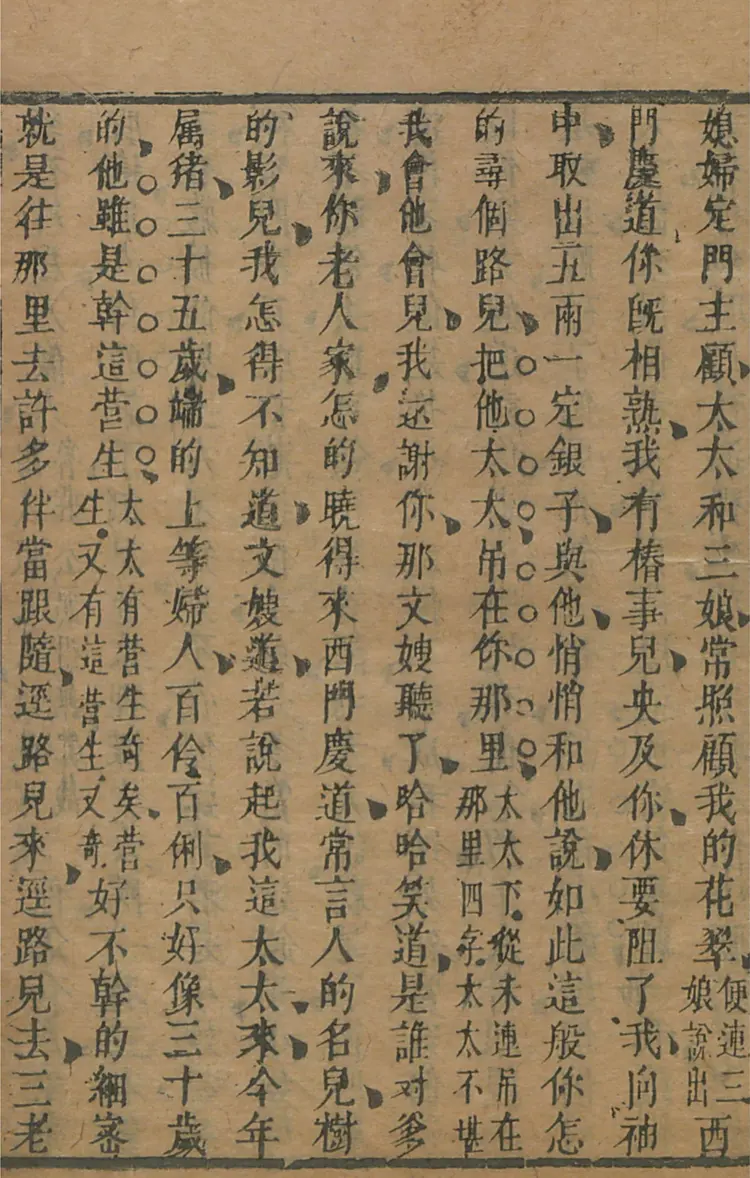 媳婦定門主顧太太和三娘常照顧我的花翠便連三娘說出西
門慶道你既相熟我有樁事兒央及你休要阻了我向袖
中取出五兩一定銀子與他悄悄和他說如此這般你怎
的尋個路兒把他太太吊在你那里太太下從未連吊在那里四字太太不堪
我會他會兒我还謝你那文嫂聽了哈哈笑道是誰对爹
說來你老人家怎的曉得來西門慶道常言人的名兒樹
的影兒我怎得不知道文嫂道若說起我這太太來今年
属猪三十五歲端的上等婦人百伶百俐只好像三十歲
的他雖是幹這营生太太有营生奇矣营生又有這营生又奇好不幹的細密
就是往那里去許多伴當跟隨逕路兒來逕路兒去三老